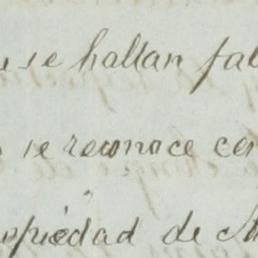 se hallan
se reconoce
opiedad de